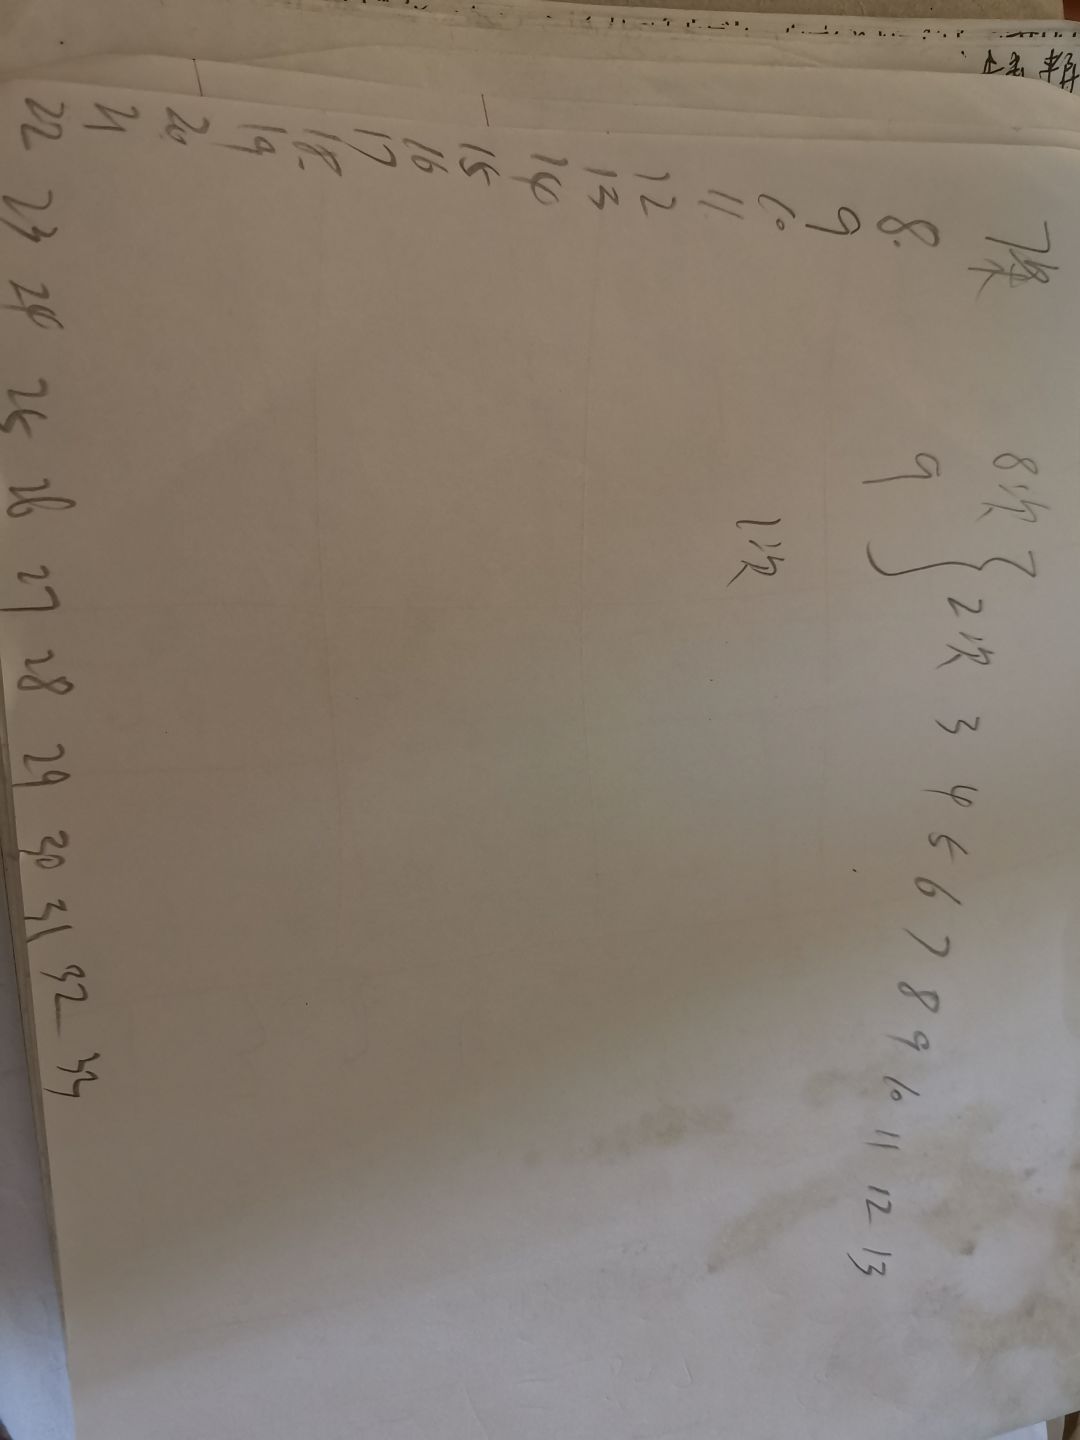 7条 8次 { 7
8. 9 } 2次 3 4 5 6 7 8 9 10 11 12 13
9
10 1次
11
12
13
14
15
16
17
18
19
20
21
22 23 24 25 26 27 28 29 30 31 32 33